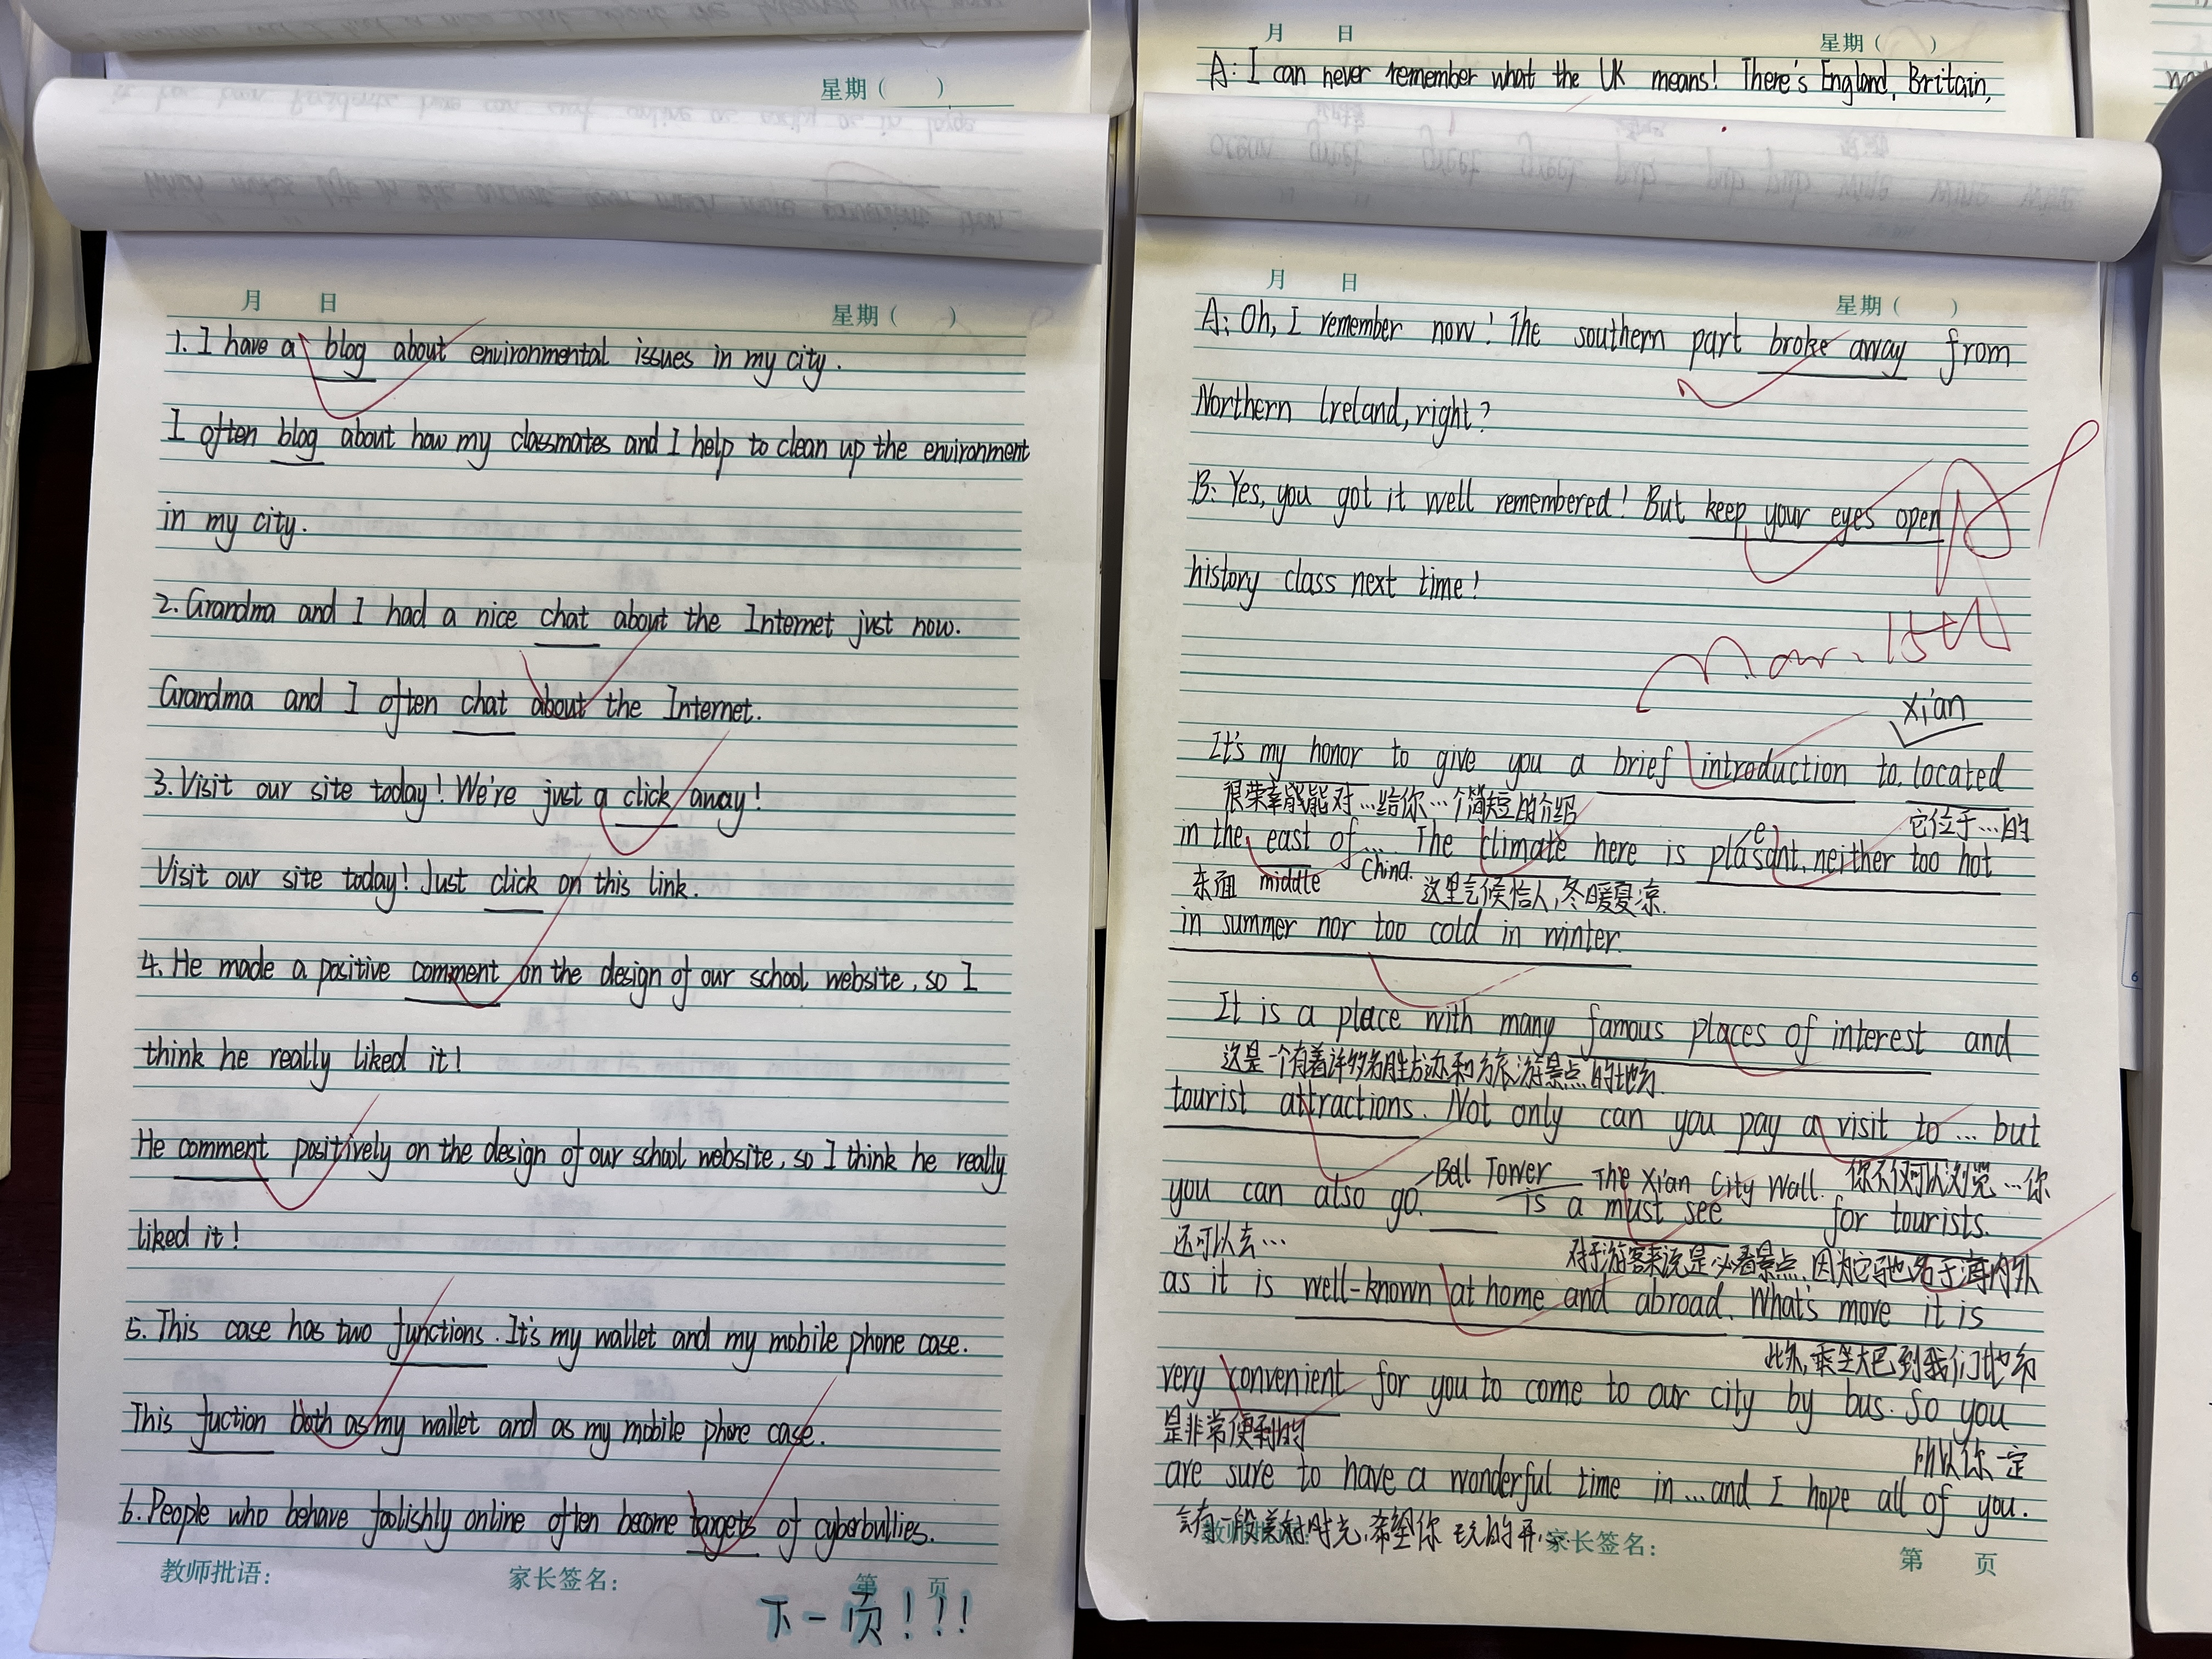 星期（ ）
月 日
星期（ ）
1. I have a blog about environmental issues in my city.
I often blog about how my classmates and I help to clean up the environment
in my city.
2. Grandma and I had a nice chat about the Internet just now.
Grandma and I often chat about the Internet.
3. Visit our site today! We're just a click away!
Visit our site today! Just click on this link.
4. He made a positive comment on the design of our school website, so I
think he really liked it!
He comment positively on the design of our school website, so I think he really
liked it!
5. This case has two functions. It's my wallet and my mobile phone case.
This fuction both as my wallet and as my mobile phone case.
6. People who behave foolishly online often become targets of cyberbullies.
教师批语: 家长签名: 第 页
下一页！！！
月 日 星期（ ）
A: I can never remember what the UK means! There's England, Britain,
月 日 星期（ ）
A: Oh, I remember now! The southern part broke away from
Northern Ireland, right?
B: Yes, you got it well remembered! But keep your eyes open
history class next time!
Mar. 15th
Xi'an
It's my honor to give you a brief introduction to. located
很荣幸能对…给你…个简短的介绍 它位于…的
in the east of... The climate here is pleasant, neither too hot
东面 middle China. 这里气候怡人,冬暖夏凉.
in summer nor too cold in winter.
It is a place with many famous places of interest and
这是一个有着许多名胜古迹和旅游景点的地方
tourist attractions. Not only can you pay a visit to ... but
Bell Tower The Xi'an City Wall. 你不仅可以浏览…你
you can also go. is a must see for tourists.
还可以去… 对于游客来说是必看景点,因为它驰名于海内外
as it is well-known at home and abroad. What's more it is
此外,乘坐大巴到我们地方
very convenient for you to come to our city by bus. So you
是非常便利的 所以你一定
are sure to have a wonderful time in ... and I hope all of you.
会有一段美好时光,希望你玩的开
家长签名: 第 页